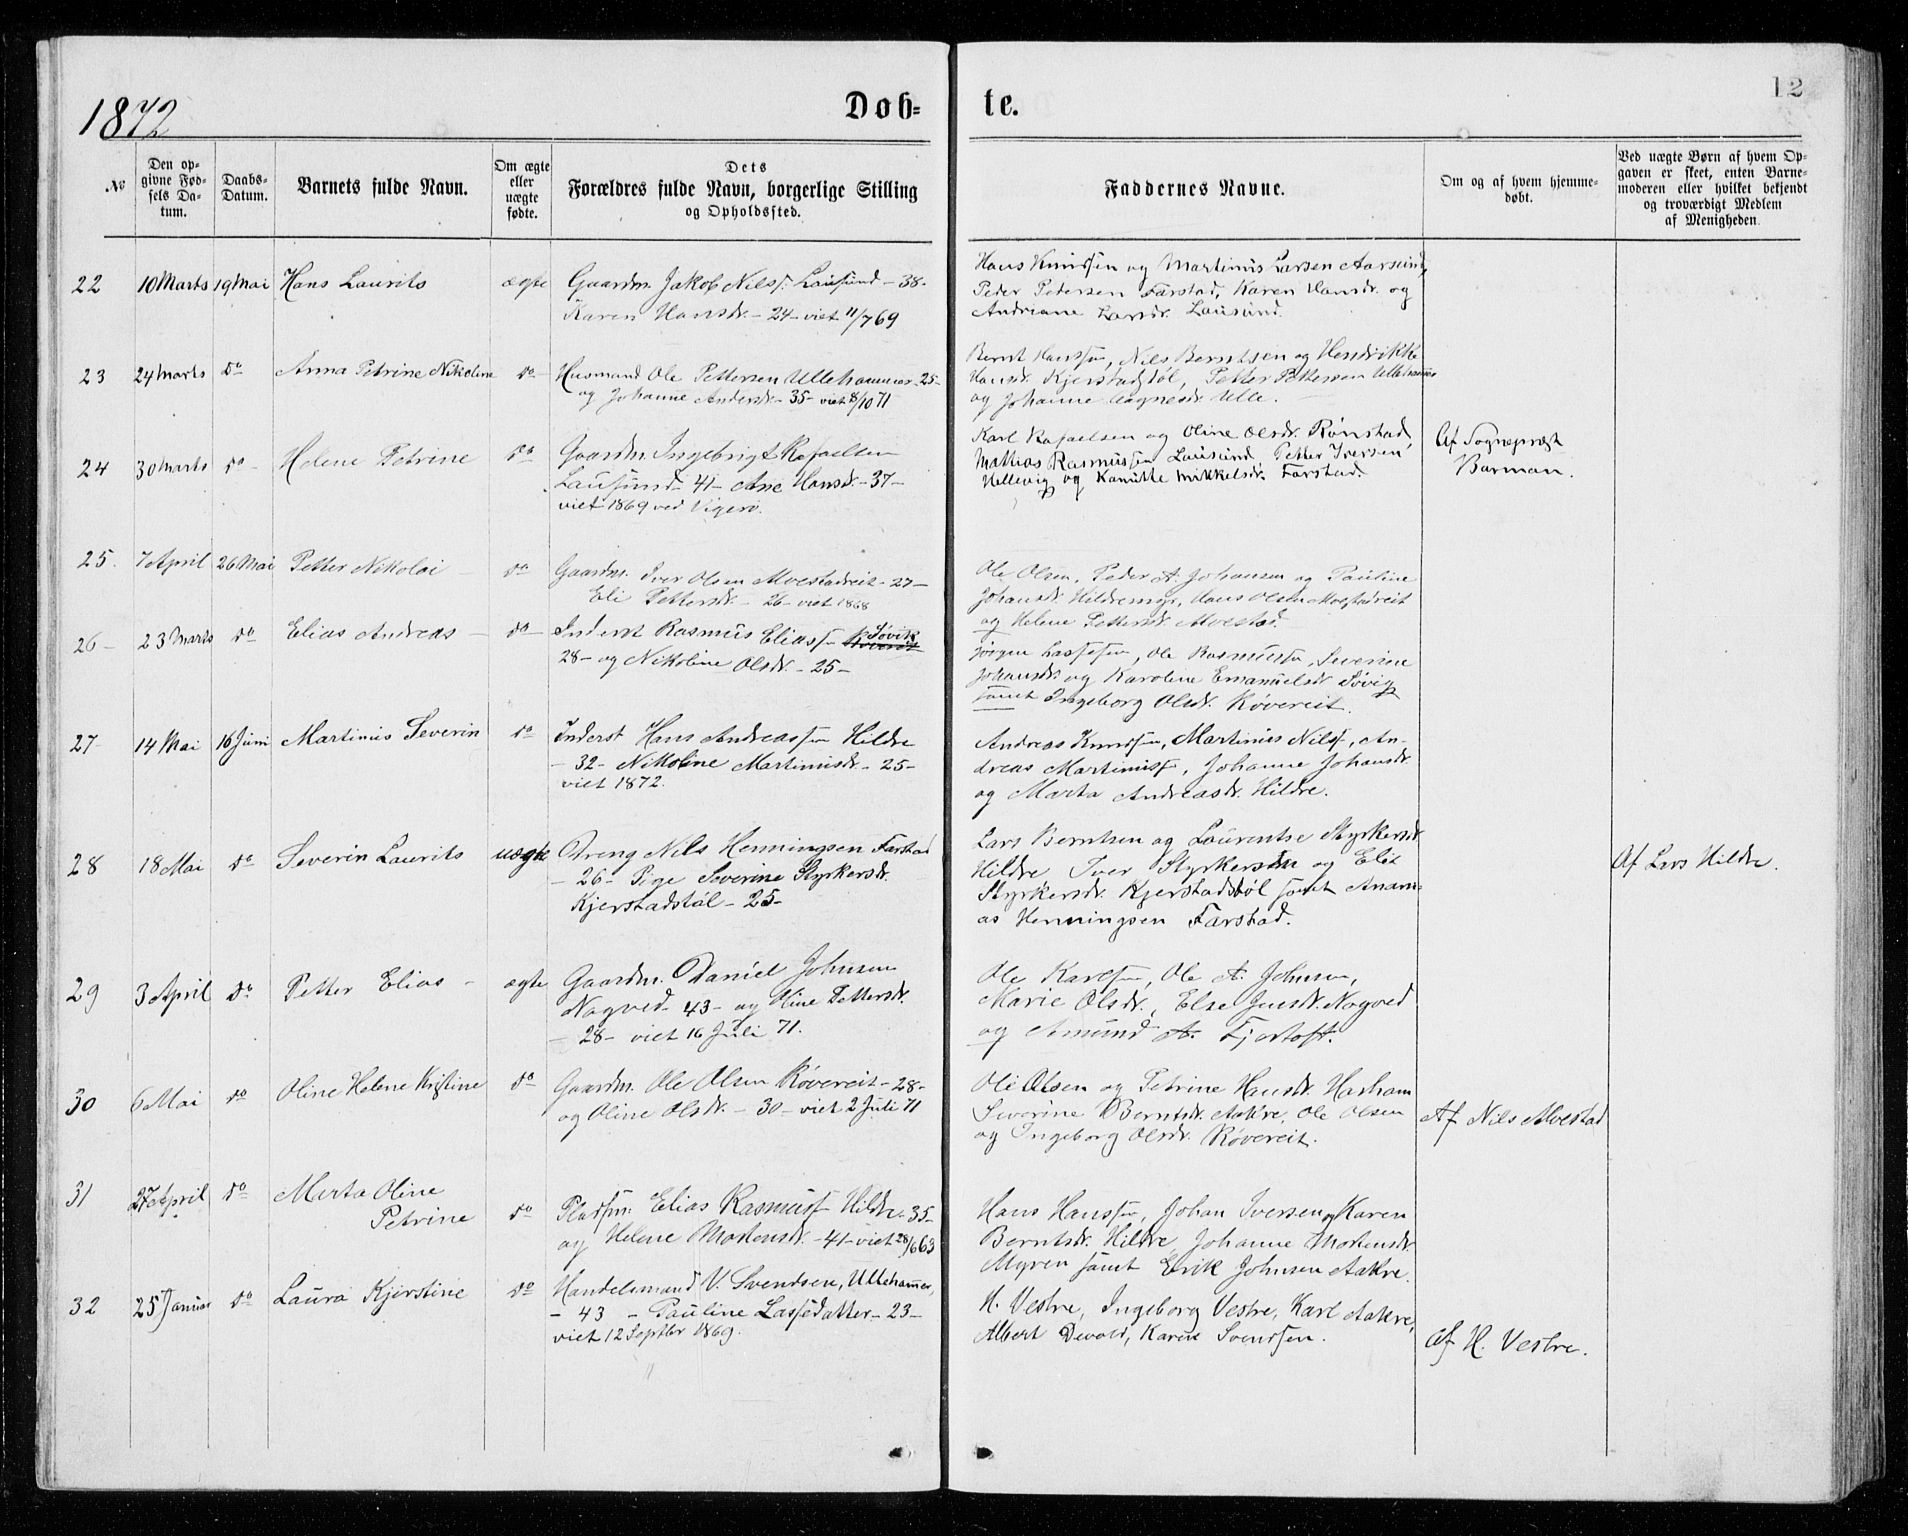 1872
Døb-
te.
12
No
Den op-
givne Fød-
sels Da-
tum.
Daabs-
Datum.
Barnets fulde Navn.
Om ægte
eller
uægte
fødte.
Dets
Forældres fulde Navn, borgerlige Stilling
og Opholdssted.
Faddernes Navne.
Om og af hvem hjemme-
døbt.
Ved uægte Børn af hvem Op-
gaven er skeet, enten Barne-
moderen eller hvilket bekjendt
og troværdigt Medlem
af Menigheden.
22 10 Marts 19 Mai Hans Laurits ægte Gaardm. Jakob Nilss. Lausund - 38-
Karen Hansdr. - 24 - viet 11/7 69
Hans Knudsen og Martinus Larsen Aarsund,
Peder Petersen Farstad, Karen Hansdr. og
Andriane Larsdr. Lausund.
23 24 Marts do Anna Petrine Nikoline do Husmand Ole Pettersen Ullehammer - 25-
og Johanne Andersdr. - 35 - viet 8/10 71
Bernt Hanssen, Nils Berntsen og Hendrikke
Hansdr. Kjerstadstøl, Petter Pettersen Ullehammer
og Johanne Aagnesdr. Ulle.
24 30 Marts do Helene Petrine do Gaardm. Ingebrigt Rafaelsen
Lausund - 41 - Ane Hansdr. - 37 -
viet 1869 ved Vigerø.
Karl Rafaelsen og Oline Olsdr. Rønstad,
Mathias Rasmussen Lausund, Petter Iversen
Hellevig og Kanutte Mikkelsdr. Farstad.
Af Sognepræst
Barman.
25. 7 April 26 Mai Petter Nikolai do Gaardm. Iver Olsen Alvestadreit - 27 -
Eli Pettersdr. - 26 - viet 1868
Ole Olsen, Peder A. Johansen og Pauline
Johansdr. Hildremyr, Hans Olsen Alvestadreit
og Helene Pettersdr. Alvestad.
26 - 23 Marts do Elias Andreas do Inderst Rasmus Eliass. Søvik
28 - og Nikoline Olsdr. - 25 -
Jørgen Lassesen, Ole Rasmuss., Severine
Johansdr. og Karoline Emanuelsdr. Søvig
samt Ingeborg Olsdr. Røvereit.
27 14 Mai 16 Juni Martinus Severin do Inderst Hans Andreassen Hildre
- 32 - Nikoline Martinusdr. - 25 -
viet 1872.
Andreas Knudsen, Martinus Nilss., An-
dreas Martinuss., Johanne Johansdr.
og Marta Andreasdr. Hildre.
28 18 Mai do Severin Laurits uægte Dreng Nils Henningsen Farstad
- 26 - Pige Severine Styrkersdr.
Kjerstadstøl - 25 -
Lars Berntsen og Laurentse Styrkersdr.
Hildre, Iver Styrkersen og Elit
Styrkersdr. Kjerstadstøl samt Anani-
as Henningsen Farstad.
Af Lars Hildre.
29 3 April do Petter Elias - ægte Gaardm. Daniel Johnsen
Nogved - 43 - og Oline Pettersdr.
- 28 - viet 16 Juli 71.
Ole Karlsen, Ole A. Johnsen,
Marie Olsdr., Else Jensdr. Nogved
og Amund A. Fjortoft.
30 6 Mai do Oline Helene Kristine do Gaardm. Ole Olsen Røvereit - 28 -
og Oline Olsdr. - 30 - viet 2 Juli 71
Ole Olsen og Petrine Hansdr. Harham
Severine Berntsdr. Aakre, Ole Olsen
og Ingeborg Olsdr. Røvereit.
Af Nils Alvestad
31 27 April do Marta Oline
Petrine do Pladsm. Elias Rasmuss. Hildre - 35 -
og Helene Mortensdr. - 41 - viet 28/6 63
Hans Hanssen, Johan Iversen og Karen
Berntsdr. Hildre, Johanne Mortensdr.
Myren samt Erik Johnsen Aakre.
32 25 Januar do Laura Kjerstine do Handelsmand V. Svendsen, Ullehammer,
- 43 - Pauline Lassedatter - 23 -
viet 12 Septbr 1869.
H. Vestre, Ingeborg Vestre, Karl Aakre,
Albert Devold, Karen Svendsen.
Af H. Vestre.